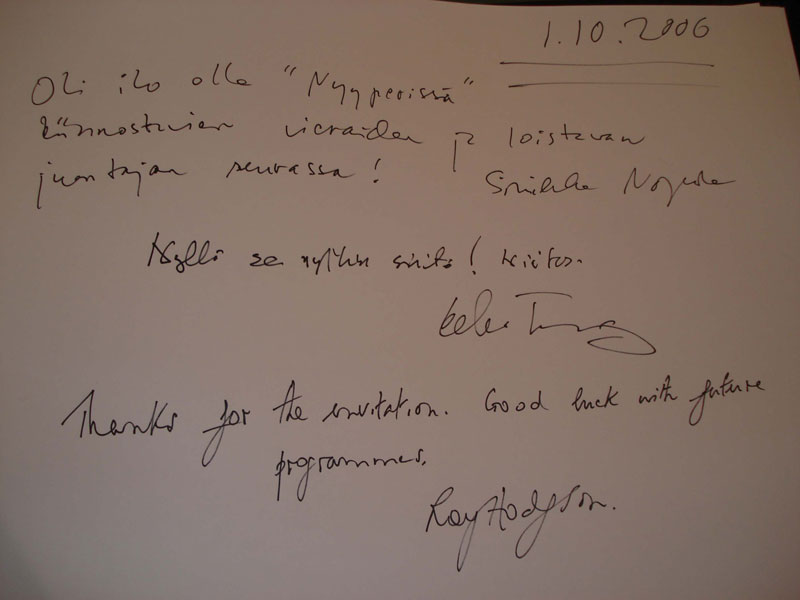 1.10.2006
Oli ilo olla "Nyyperissä"
kiinnostavien vieraiden ja loistavan
juontajan seurassa!
Kyllä se sieltä! Kiitos.
Thanks for the invitation. Good luck with future
programmes.
Roy Hodgson.